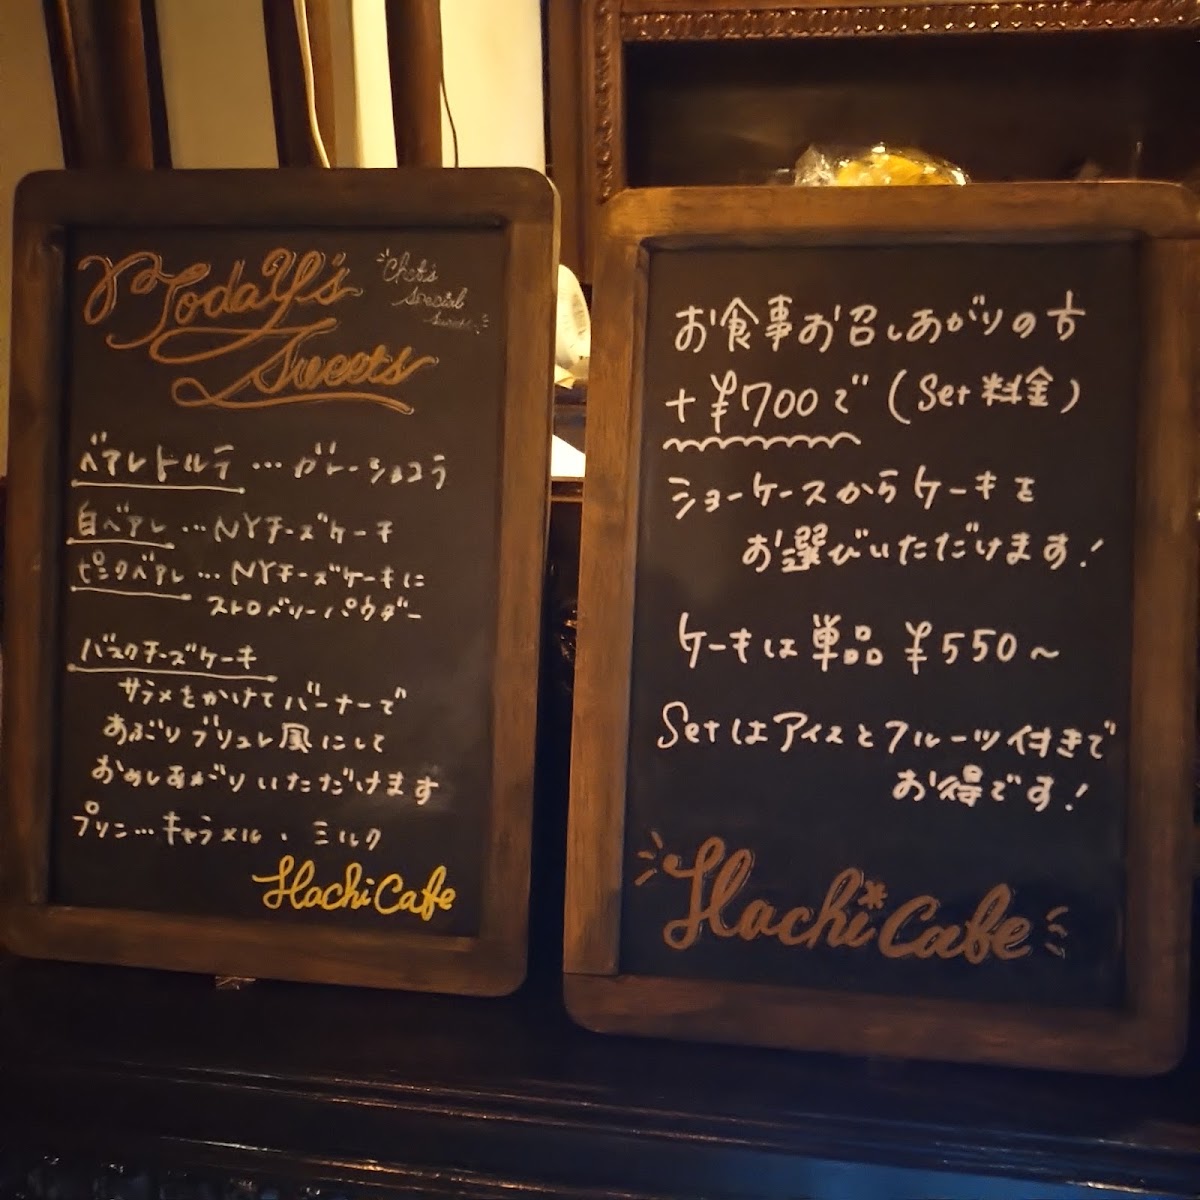 Today's
Sweets
Chef's
Special
ベアレトルテ … ガトーショコラ
白ベアレ … NYチーズケーキ
ピンクベアレ … NYチーズケーキに
ストロベリーパウダー
バスクチーズケーキ
ザラメをかけてバーナーで
あぶりブリュレ風にして
おめしあがりいただけます
プリン … キャラメル・ミルク
Hachi Cafe
お食事お召しあがりの方
+¥700で (Set料金)
ショーケースからケーキを
お選びいただけます!
ケーキは単品¥550~
Setはアイスとフルーツ付きで
お得です!
Hachi Cafe